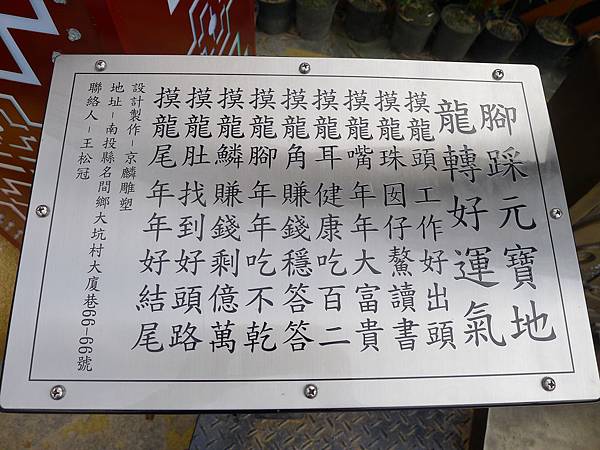 腳踩元寶地
龍轉好運氣
摸龍頭 工作好出頭
摸龍珠 囡仔驁讀書
摸龍嘴 年年大富貴
摸龍耳 健康吃百二
摸龍角 賺錢穩答答
摸龍腳 年年吃不乾
摸龍鱗 賺錢剩億萬
摸龍肚 找到好頭路
摸龍尾 年年好結尾
設計製作－京麟雕塑
地址－南投縣名間鄉大坑村大廈巷99-99號
聯絡人－王松冠